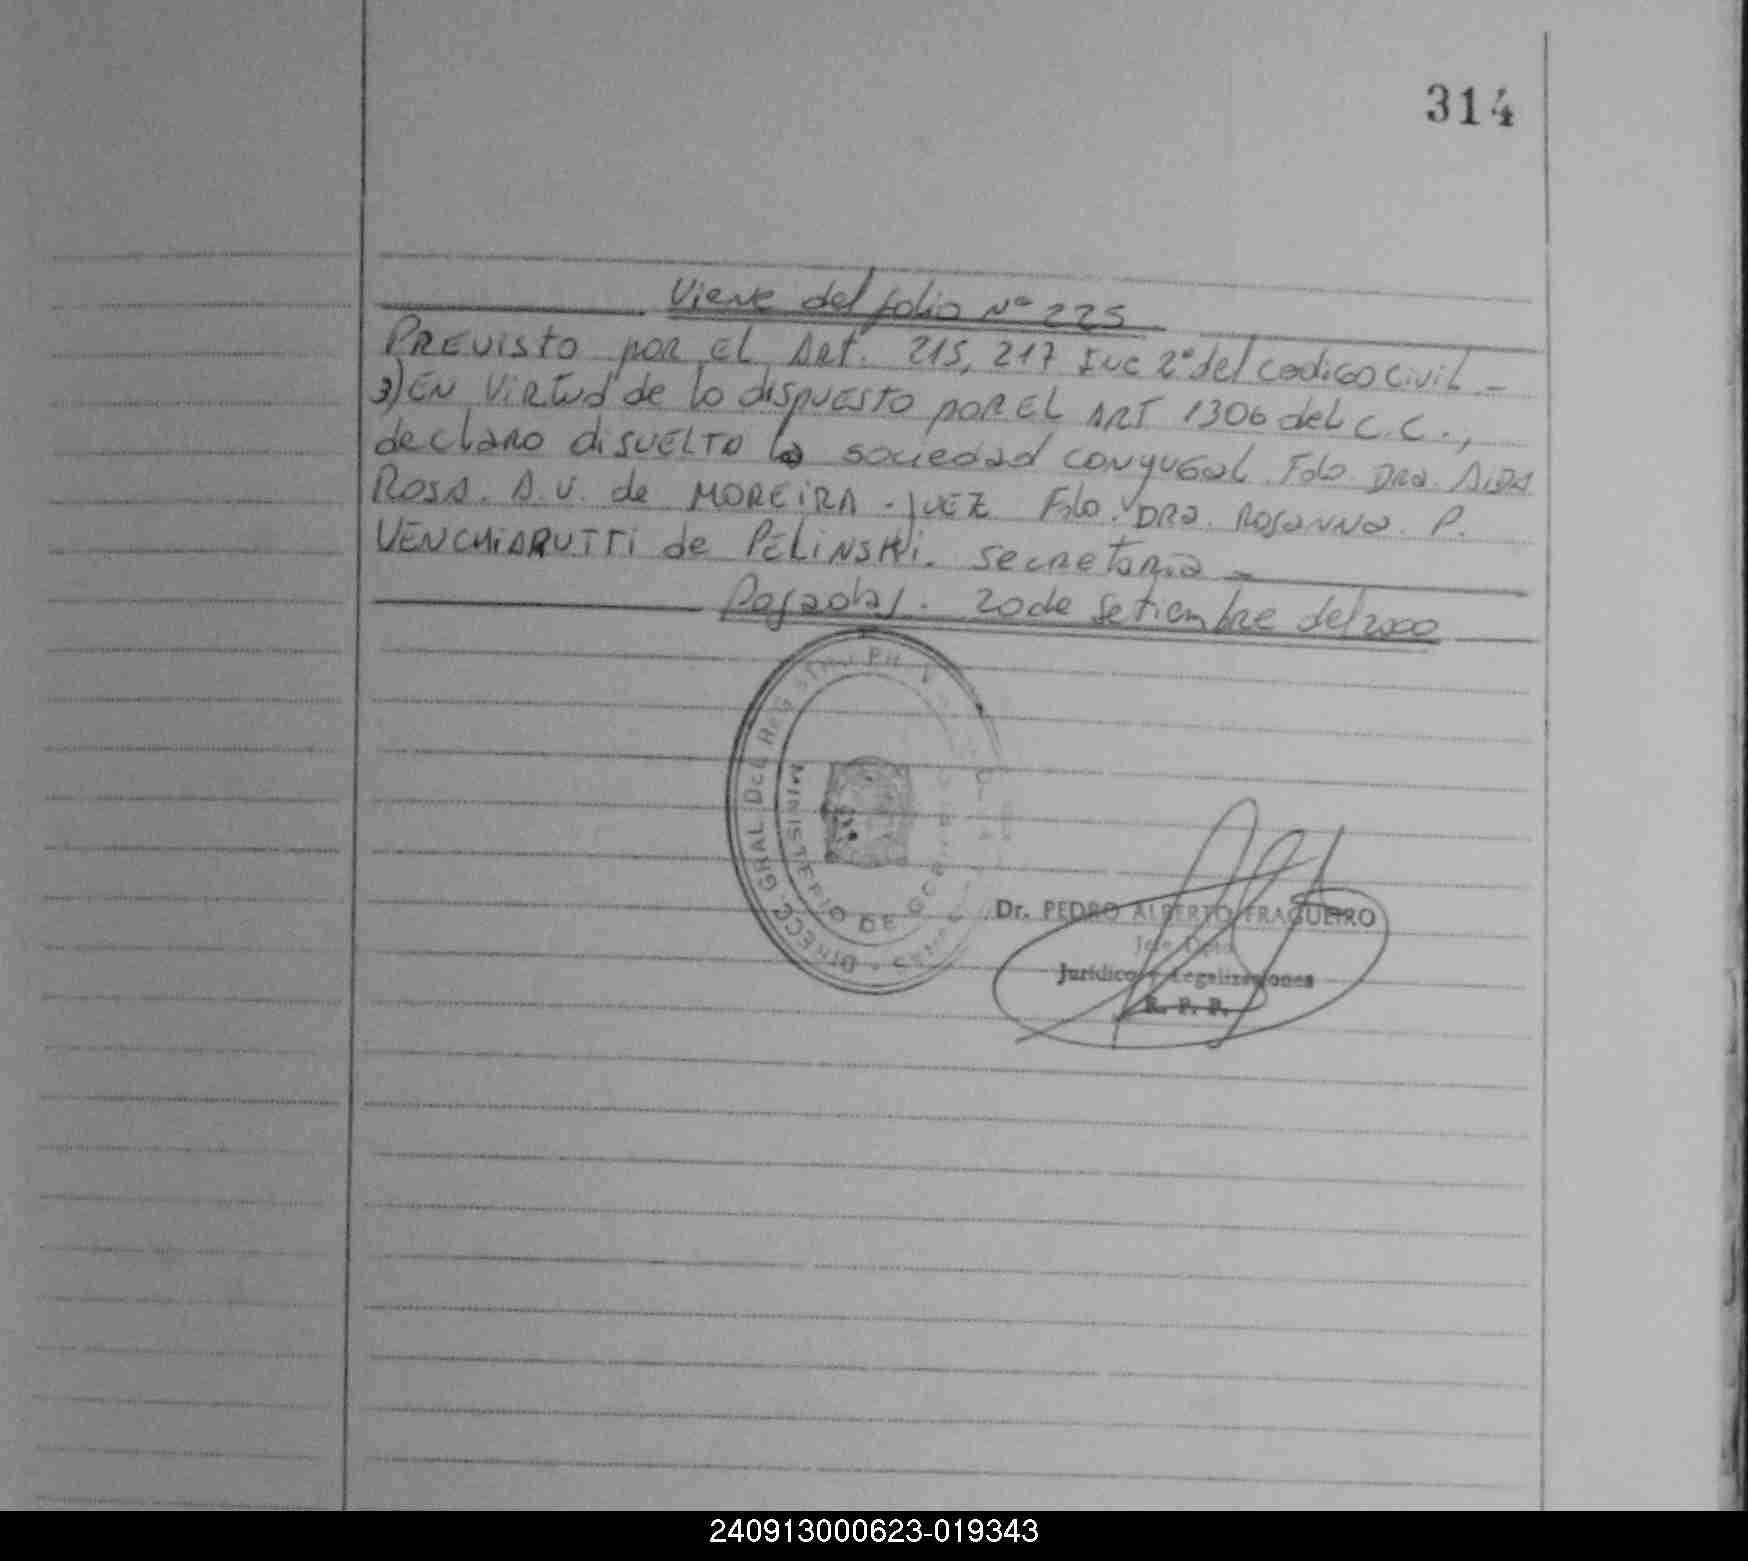 314
Viene del folio Nº 225
PREVISTO POR EL ART. 215, 217 INC 2º del codigo civil -
3) EN VIRTUD de lo dispuesto por EL ART 1306 del C.C.,
declaro disuelto la sociedad conyugal. Fdo. Dra. AIDA
ROSA. A.V. de MOREIRA - JUEZ Fdo. DRA. Rosanna. P.
VENCHIARUTTI de PELINSKI. secretaria -
Posadas. 20 de Setiembre del 2000
DIRECC. GRAL DEL REG
MINISTERIO DE GOB
Dr. PEDRO ALBERTO FRAGUEIRO
Jefe Dpto
Jurídico y Legalizaciones
R. P. P.
240913000623-019343